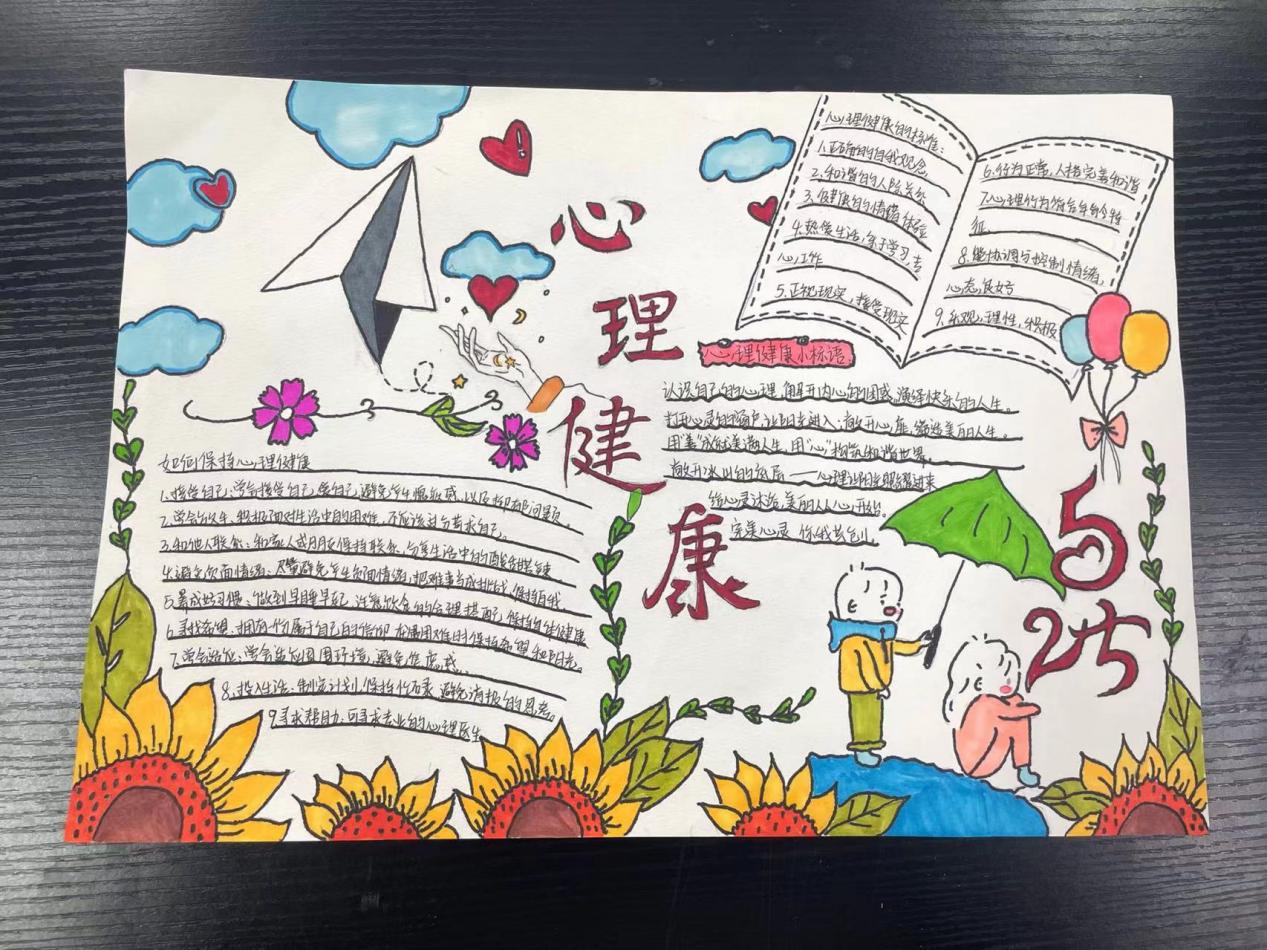 心理健康
心理健康的标准:
1.正确的自我观念,
2.和谐的人际关系
3.健康的情绪体验
4.热爱生活,乐于学习,专
心工作
5.正视现实,接受现实
6.行为正常,人格完善和谐
7.心理行为符合年龄特
征
8.能协调与控制情绪,
心态良好
9.乐观,理性,积极
心理健康小标语:
认识自己的心理,解开内心的困惑,演绎快乐的人生。
打开心灵的窗户,让阳光进入;敞开心扉,缔造美丽人生。
用“美”成就美满人生,用“心”构筑和谐世界。
敞开冰山的اخر
给心灵沐浴,美丽从心开始。
完美心灵 你我共创。
525
如何保持心理健康
1.接受自己:学会接受自己,爱自己,避免产生
2.学会 积极面对生活中的困难,不应该过分苛求自己。
3.和他人联系:和家人或朋友保持联系,分享生活中的酸甜苦辣
4.避免负面情绪:尽量避免产生负面情绪,把难事当成挑战,保持自我
5.养成好习惯:做到早睡早起,注意饮食的合理搭配,保持身体健康
6.寻找希望:拥有一份属于自己的信仰,在遇困难时保持希望和阳光。
7.学会适应:学会适应周围环境,避免焦虑感.
8.投入生活:制定计划,保持忙碌,避免消极的思考。
9.寻求帮助:可寻求专业的心理医生